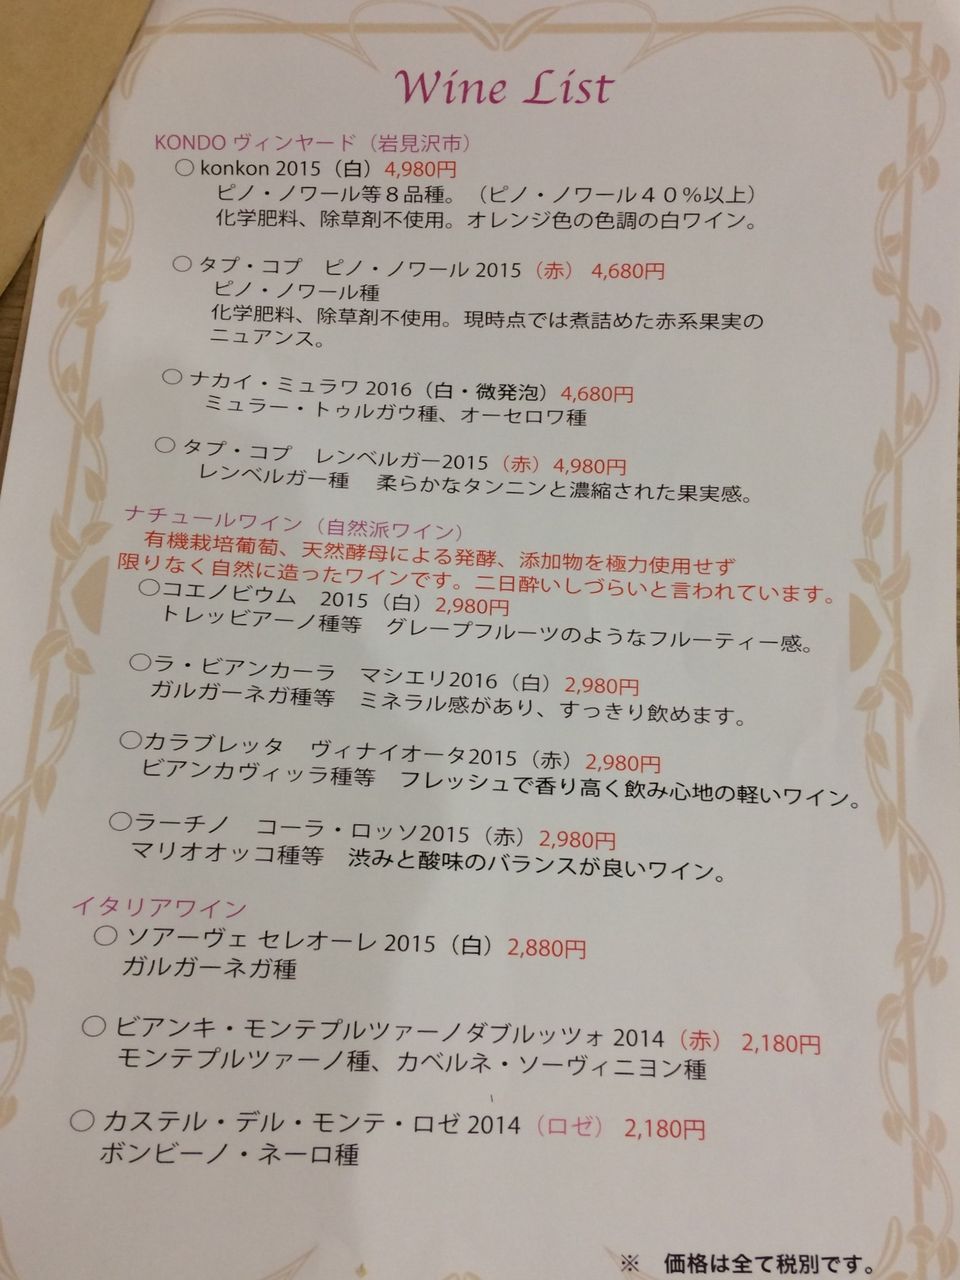 Wine List
KONDO ヴィンヤード（岩見沢市）
○ konkon 2015（白）4,980円
ピノ・ノワール等８品種。（ピノ・ノワール４０％以上）
化学肥料、除草剤不使用。オレンジ色の色調の白ワイン。
○ タプ・コプ　ピノ・ノワール 2015（赤） 4,680円
ピノ・ノワール種
化学肥料、除草剤不使用。現時点では煮詰めた赤系果実の
ニュアンス。
○ ナカイ・ミュラワ 2016（白・微発泡）4,680円
ミュラー・トゥルガウ種、オーセロワ種
○ タプ・コプ　レンベルガー2015（赤）4,980円
レンベルガー種　柔らかなタンニンと濃縮された果実感。
ナチュールワイン（自然派ワイン）
有機栽培葡萄、天然酵母による発酵、添加物を極力使用せず
限りなく自然に造ったワインです。二日酔いしづらいと言われています。
○コエノビウム　2015（白）2,980円
トレッビアーノ種等　グレープフルーツのようなフルーティー感。
○ラ・ビアンカーラ　マシエリ2016（白）2,980円
ガルガーネガ種等　ミネラル感があり、すっきり飲めます。
○カラブレッタ　ヴィナイオータ2015（赤）2,980円
ビアンカヴィッラ種等　フレッシュで香り高く飲み心地の軽いワイン。
○ラーチノ　コーラ・ロッソ2015（赤）2,980円
マリオオッコ種等　渋みと酸味のバランスが良いワイン。
イタリアワイン
○ ソアーヴェ セレオーレ 2015（白）2,880円
ガルガーネガ種
○ ビアンキ・モンテプルツァーノダブルッツォ 2014（赤） 2,180円
モンテプルツァーノ種、カベルネ・ソーヴィニヨン種
○ カステル・デル・モンテ・ロゼ 2014（ロゼ） 2,180円
ボンビーノ・ネーロ種
※　価格は全て税別です。